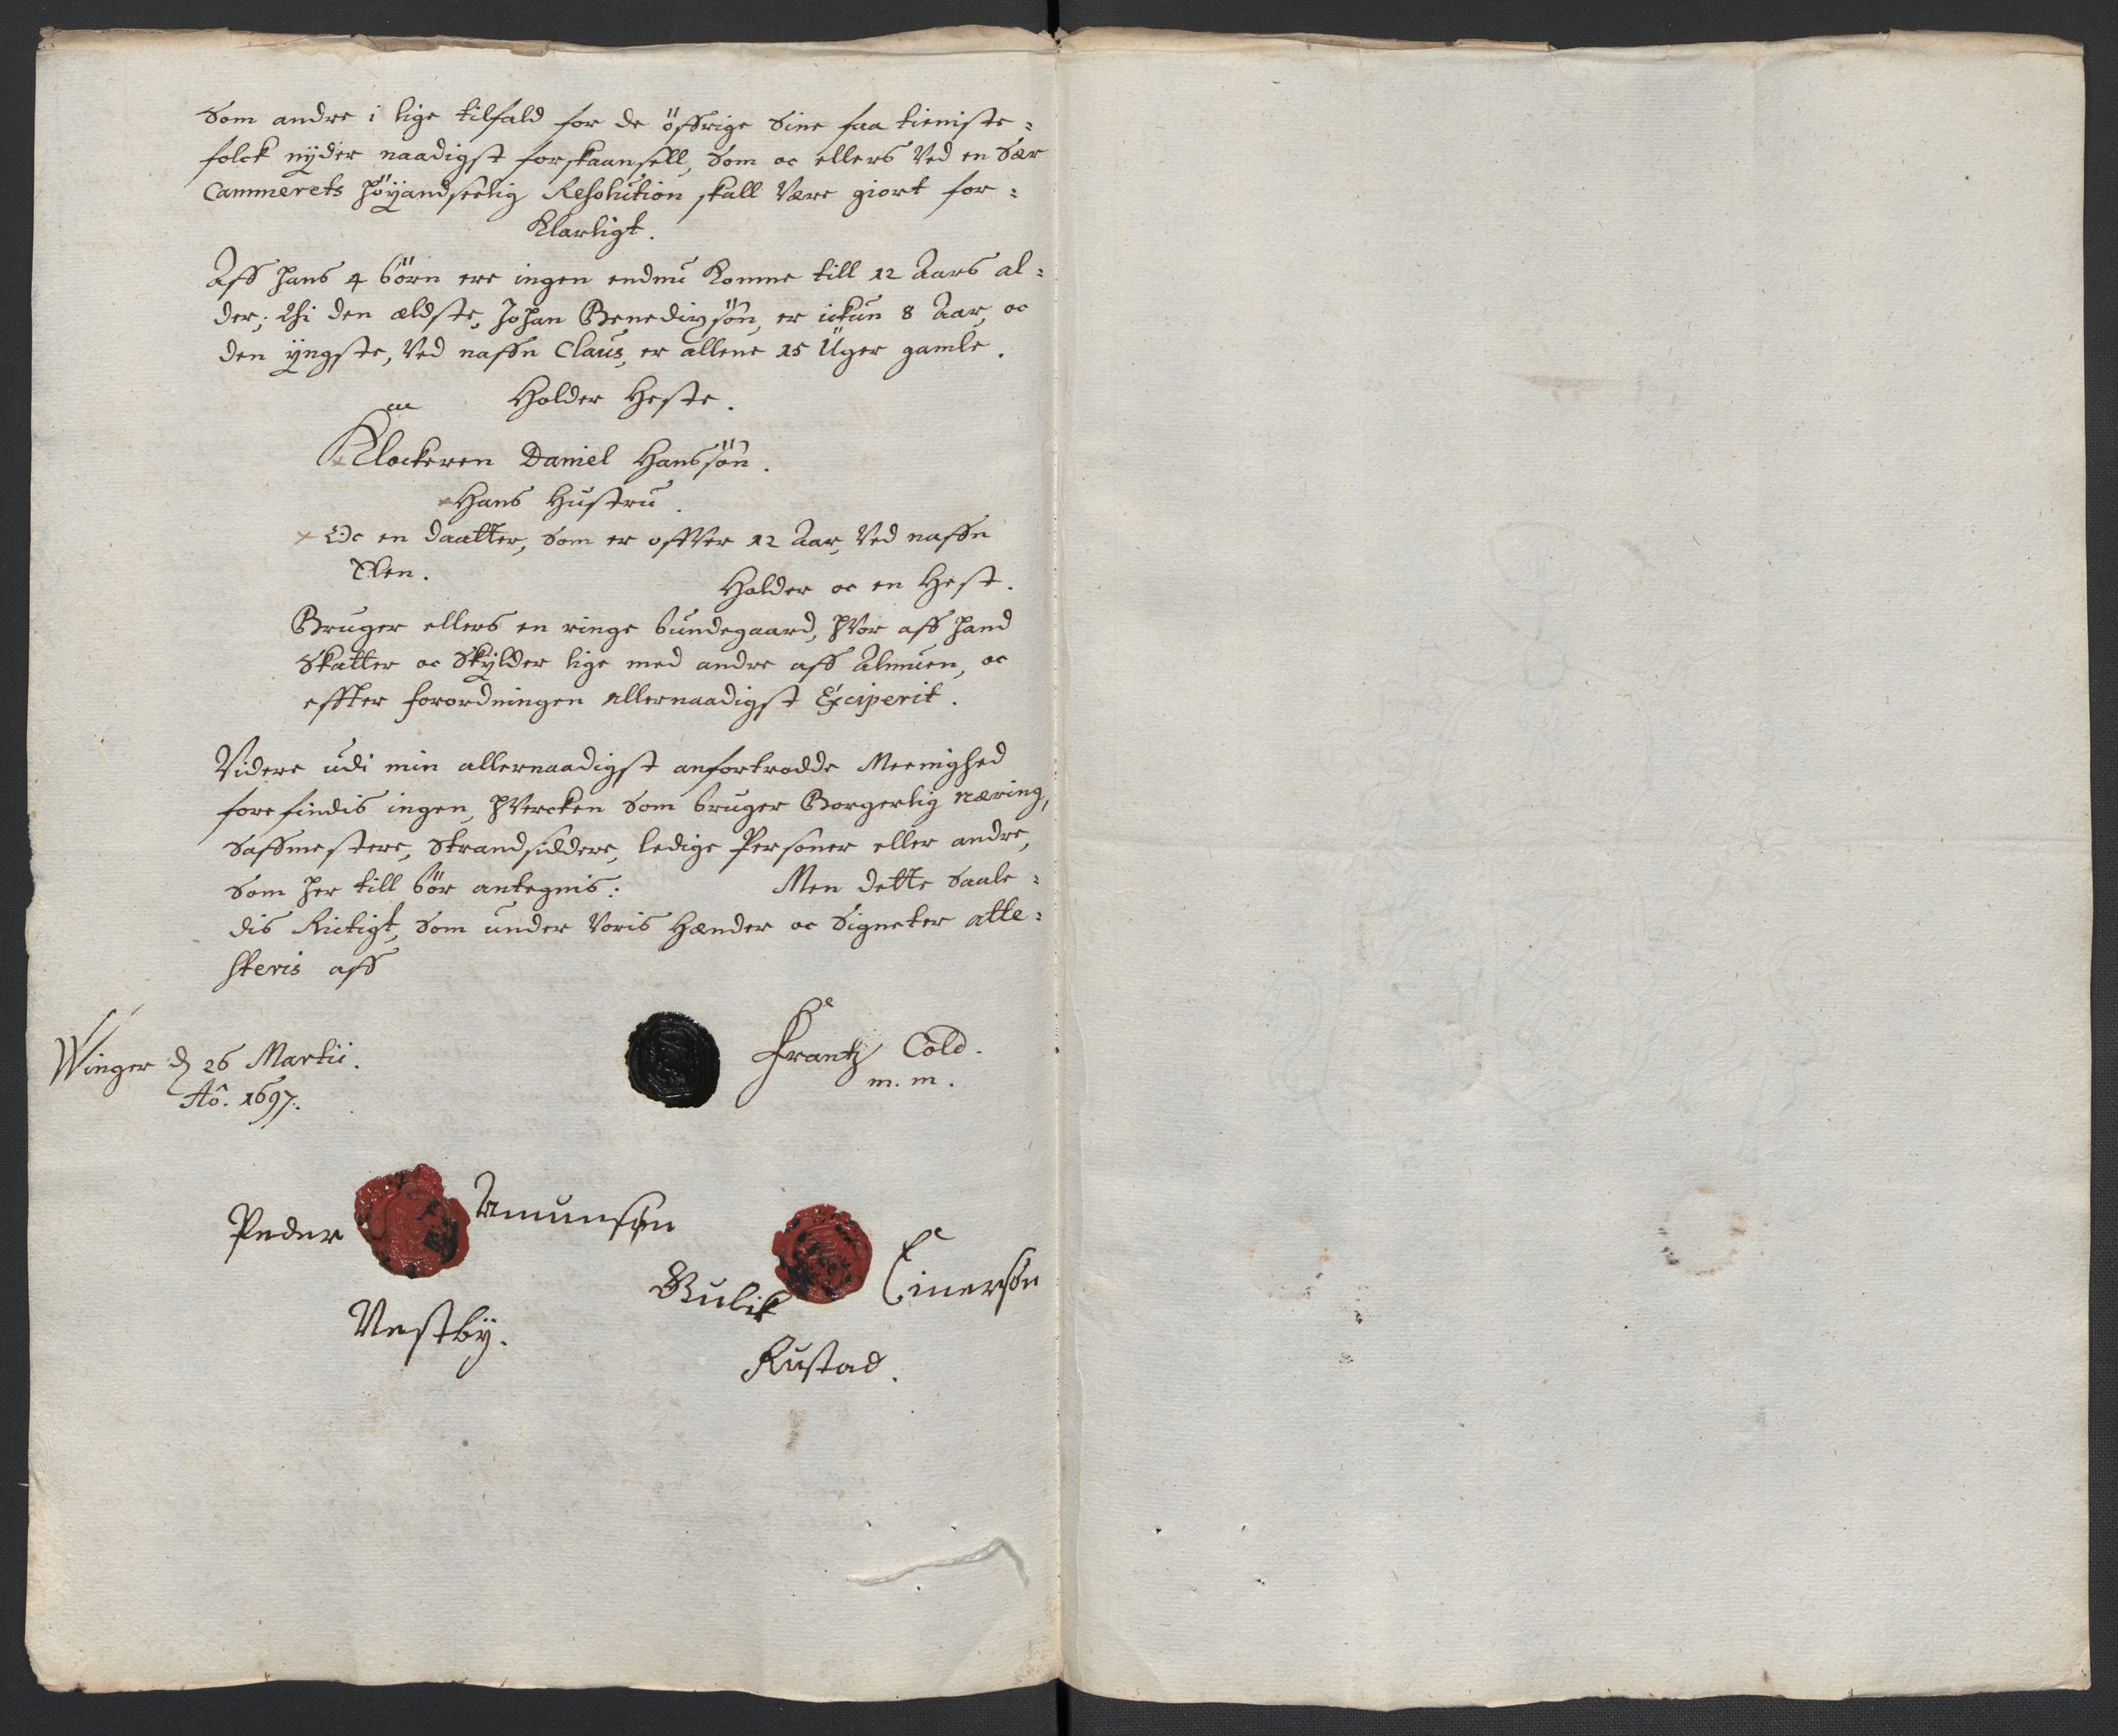 Som andre i lige tilfald for de öffrige Sine faa tieniste=
folck nÿder naadigst forskaansell, Som oc ellers Ved en Sær
Cammerets höÿandseelig Resolution skall Være giort for=
Klarligt.
Aff hans 4 börn ere ingen endnu Komne till 12 Aars al=
der; Thi den ældste, Johan Benedixsön, er ickun 8 Aar, oc
den ÿngste, Ved naffn Claus, er allene 15 Uger gamle.
Holder Heste.
Klockeren Daniel Hanssön.
Hans Hustru.
Oc en daatter, Som er offVer 12 Aar, Ved naffn
Elen.
Holder oc en Hest.
Bruger ellers en ringe bundegaard, hVor aff hand
Skatter oc Skÿlder lige med andre aff Almuen, oc
effter forordningen allernaadigst Exciperit.
Videre udi min allernaadigst anfortrodde Meenighed
forefindis ingen, hVercken Som bruger Borgerlig næring,
Saffmestere, Strandsiddere, ledige Personer eller andre,
Som her till bör antegnis:
Men dette Saale=
dis Rictigt, Som under Voris Hænder oc Signeter atte=
steris aff
Winger d 26 Martii.
Aō. 1697.
Frantz Cold.
m. m.
Peder Amunsøn
Vestbÿ.
Gulik Einersøn
Rustad.